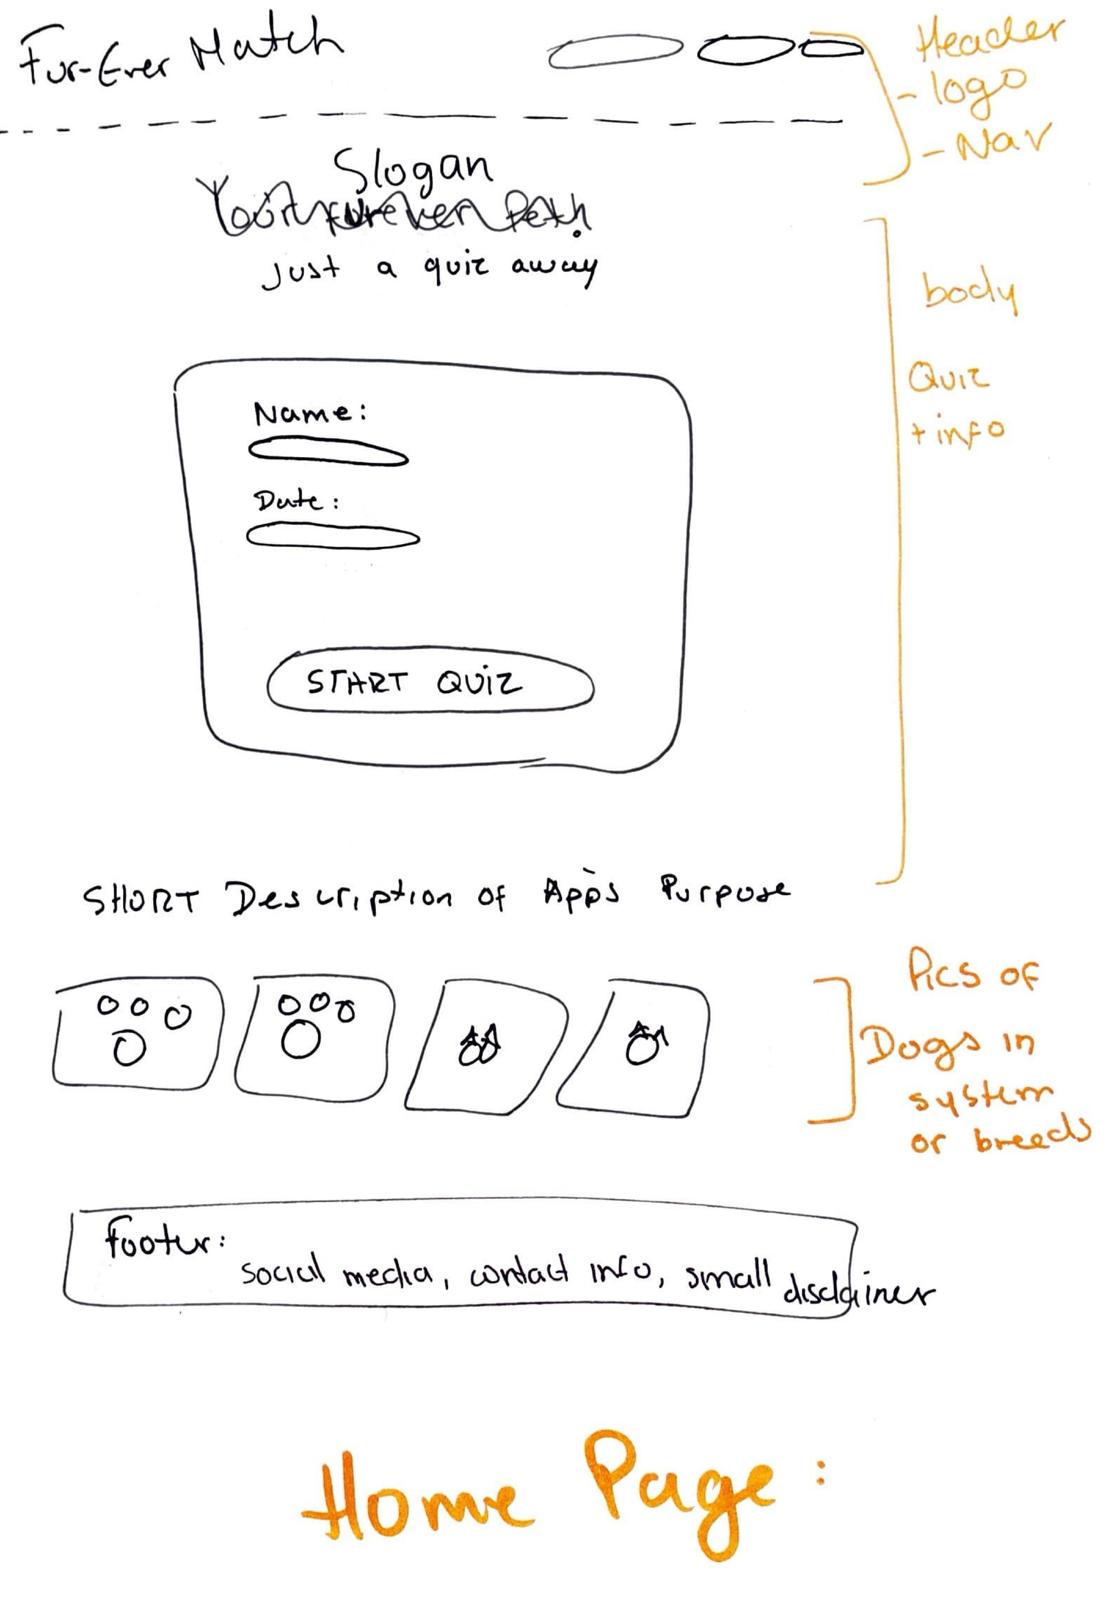 Fur-Ever Match
Header
- logo
- Nav
Slogan
just a quiz away
body
Quiz
+ info
Name:
Date:
START QUIZ
SHORT Description of App's Purpose
Pics of
Dogs in
system
or breeds
footer:
social media, contact info, small disclaimer
Home Page: